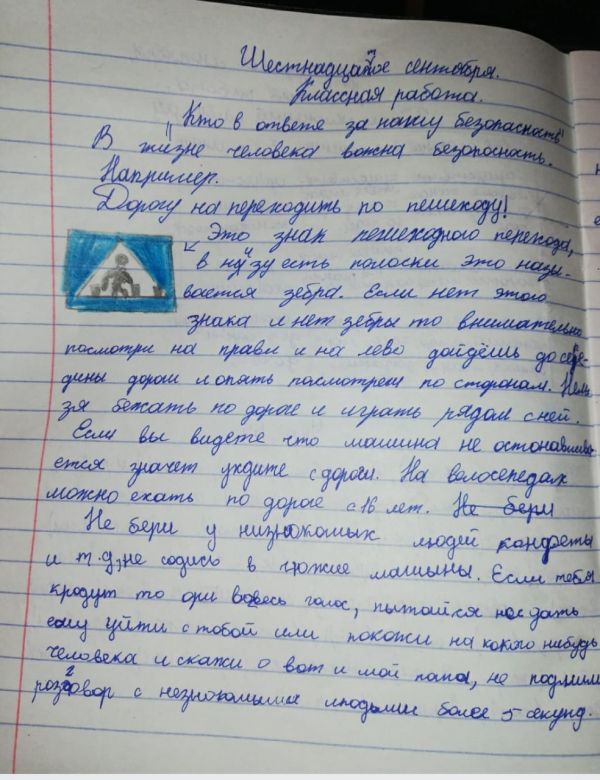 Шестнадцатое сентября.
Классная работа.
"Кто в ответе за нашу безопасность"
В жизне человека важна безопасность.
Например.
Дорогу на переходить по пешеходу!
Это знак пешеходного перехода,
в низу есть полоски это назы-
вается зебра. Если нет этого
знака и нет зебры то внимательно
посмотри на прави и на лево дойдёшь до сере-
дины дороги и опять посмотрел по сторонам. Нель
зя бежать по дороге и играть рядом с ней.
Если вы видете что машина не останавлива
ется значет уйдите с дороги. На велосепедах
можно ехать по дороге с 16 лет. Не бери
Не бери у низнокомых людей конфеты
и т.д, не содись в чюжие машыны. Если тебя
крадут то ори во весь голос, пытайся не дать
ему уйти с тобой или покожи на какого нибудь
человека и скажи о вот и мой папа, не
розговор с незнокомыми людьми более 5 секунд.